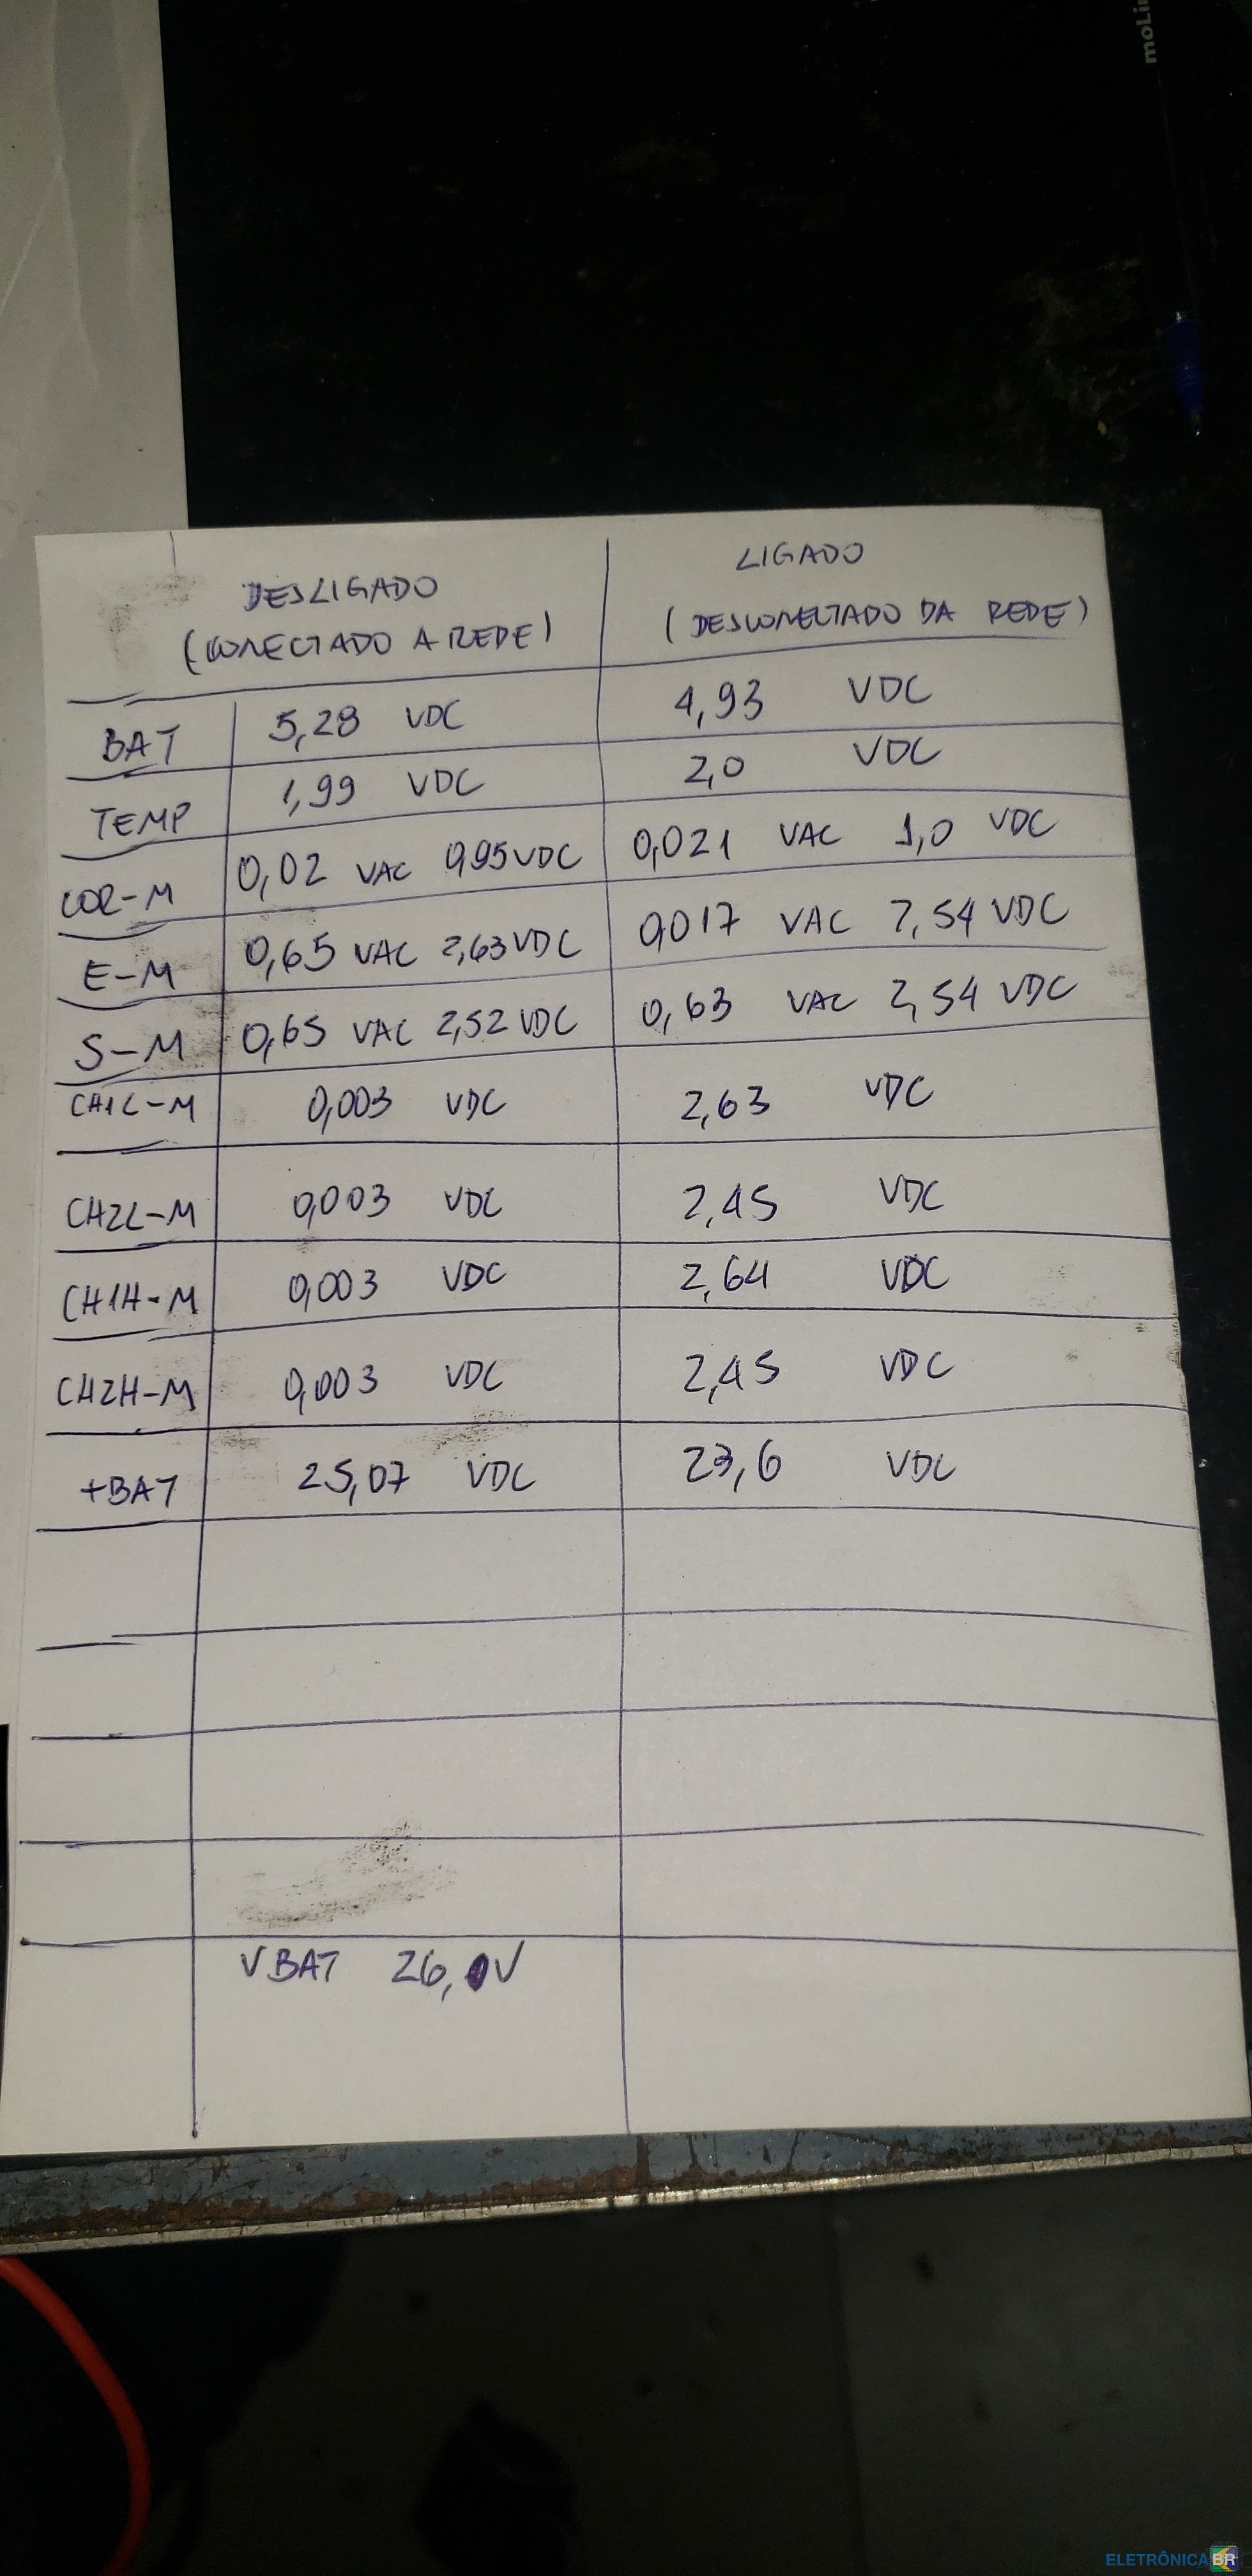 moLin
DESLIGADO
(CONECTADO A REDE)
LIGADO
(DESCONECTADO DA REDE)
BAT 5,28 VDC 4,93 VDC
TEMP 1,99 VDC 2,0 VDC
COR-M 0,02 VAC 0,95VDC 0,021 VAC 1,0 VDC
E-M 0,65 VAC 2,63VDC 0,017 VAC 2,54 VDC
S-M 0,65 VAC 2,52 VDC 0,63 VAC 2,54 VDC
CH1L-M 0,003 VDC 2,63 VDC
CH2L-M 0,003 VDC 2,45 VDC
CH1H-M 0,003 VDC 2,64 VDC
CH2H-M 0,003 VDC 2,45 VDC
+BAT 25,07 VDC 23,6 VDC
VBAT 26,0V
ELETRÔNICABR